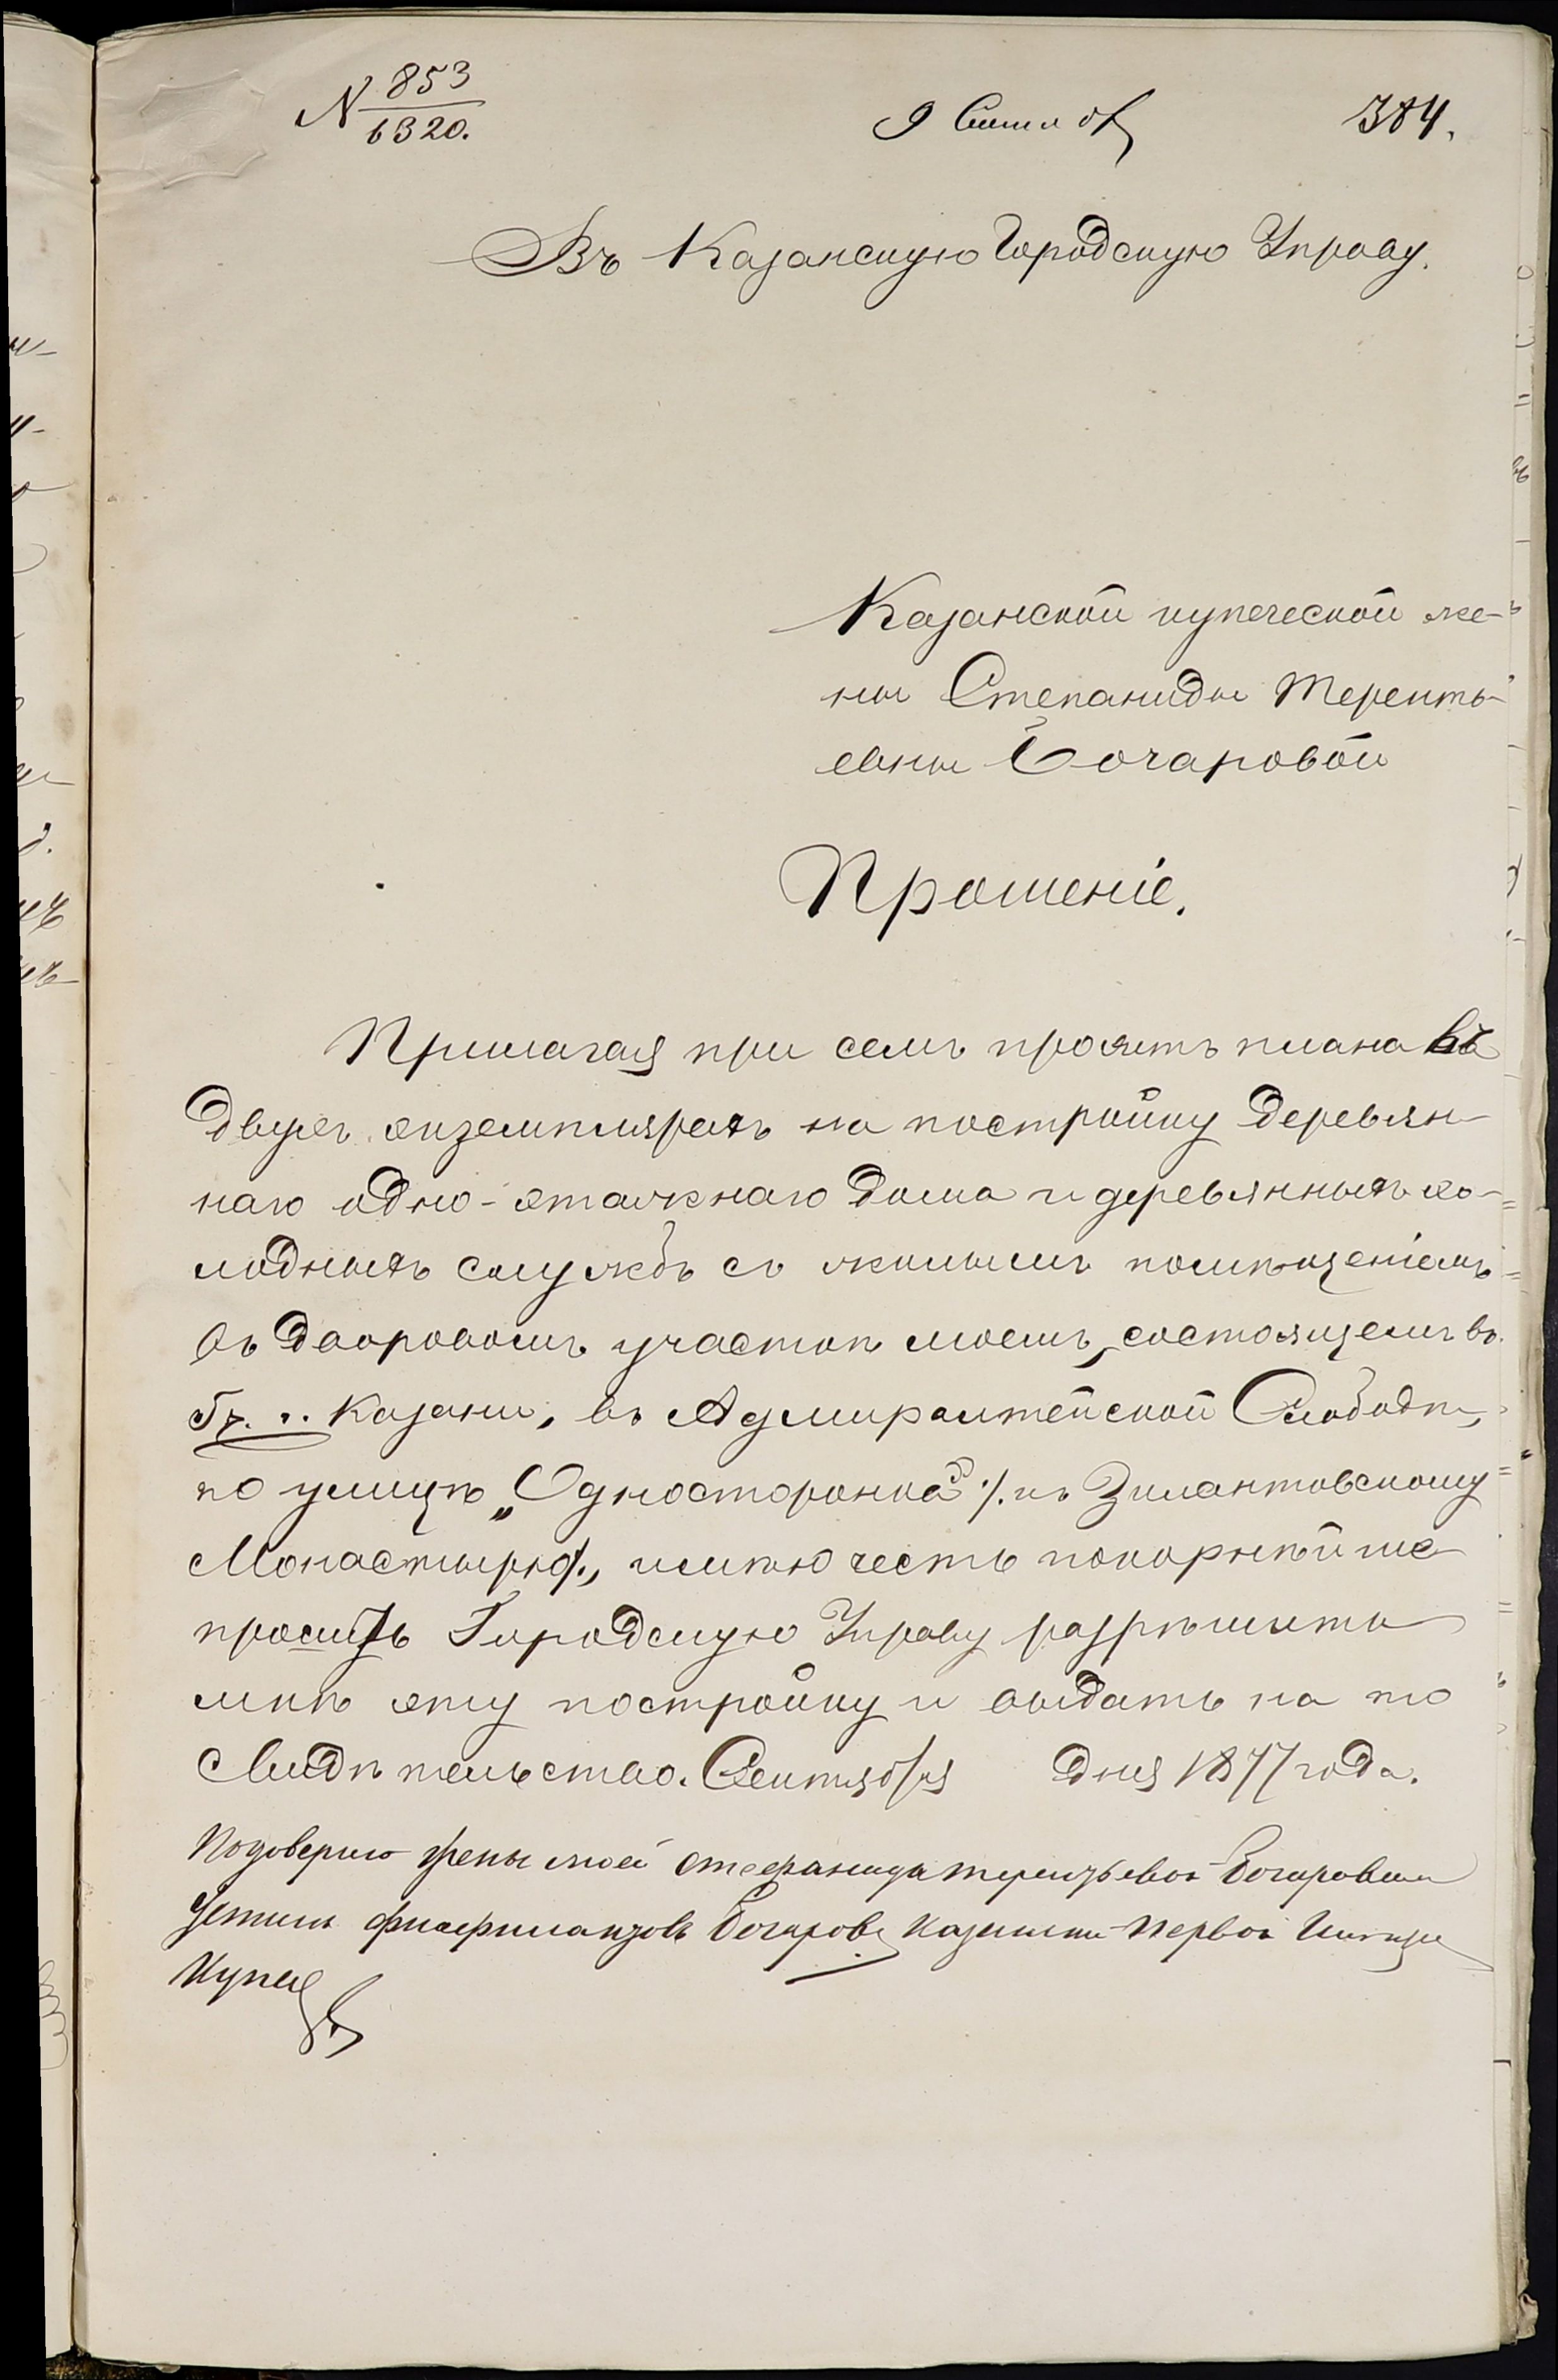 N 853/6320.
9 Сент
384.
Въ Казанскую Городскую Управу.
Казанской купеческой же-
ны Степаниды Теренть-
евны Бочаровой
Прошеніе.
Прилагая при семъ проэктъ плана въ
двухъ экземплярахъ на постройку деревян-
наго одно-этажнаго дома и деревянныхъ хо-
лодныхъ службъ съ жилымъ помѣщеніемъ
въ дворовомъ участкѣ моемъ, состоящемъ въ
Гр. .. Казани, въ Адмиралтейской Слободѣ,
по улицѣ „Односторонка" ./. къ Зилантовскому
Монастырю ./., имѣю честь покорнѣйше
просить Городскую Управу разрѣшить
мнѣ эту постройку и выдать на то
Свидѣтельство. Сентября дня 1877 года.
Подоверию жены моей Стефанида терентьевой Бочаровой
Устинъ Бочаровъ Казански Первой Гильди
Купец